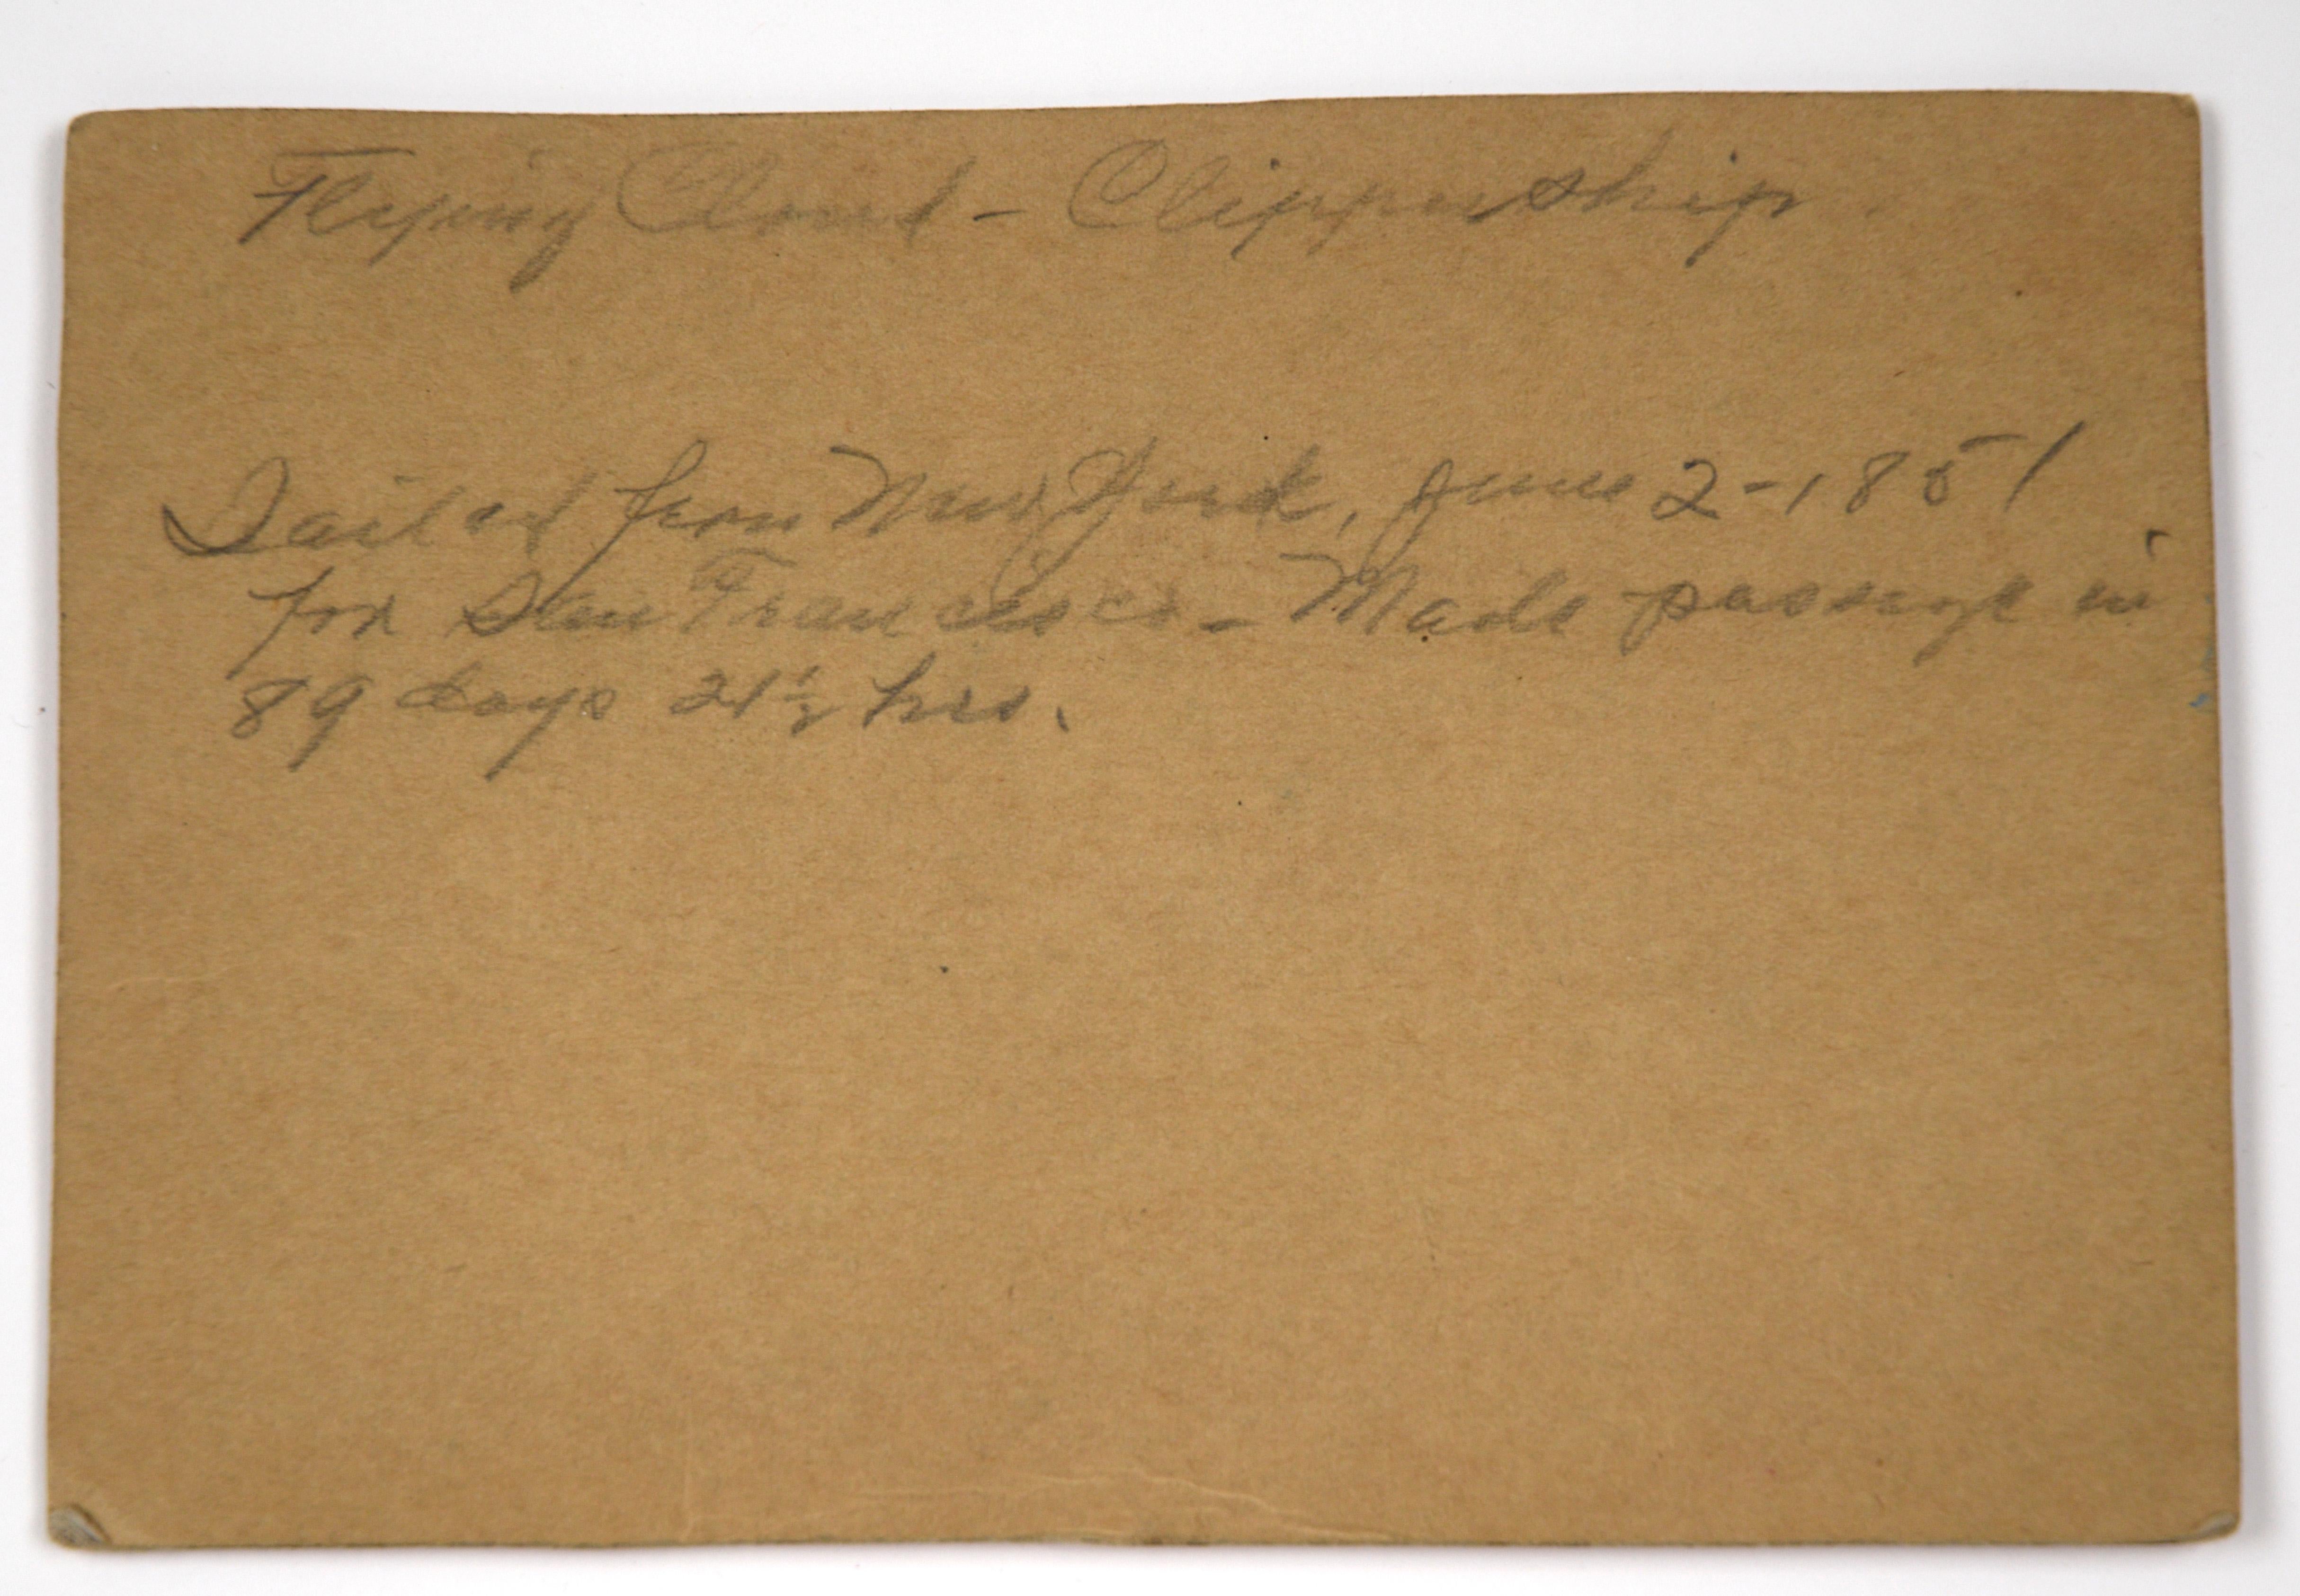 Flying Cloud - Clippership.
Sailed from New York, June 2-1851
for San Francisco - Made passage in
89 days 21½ hrs.